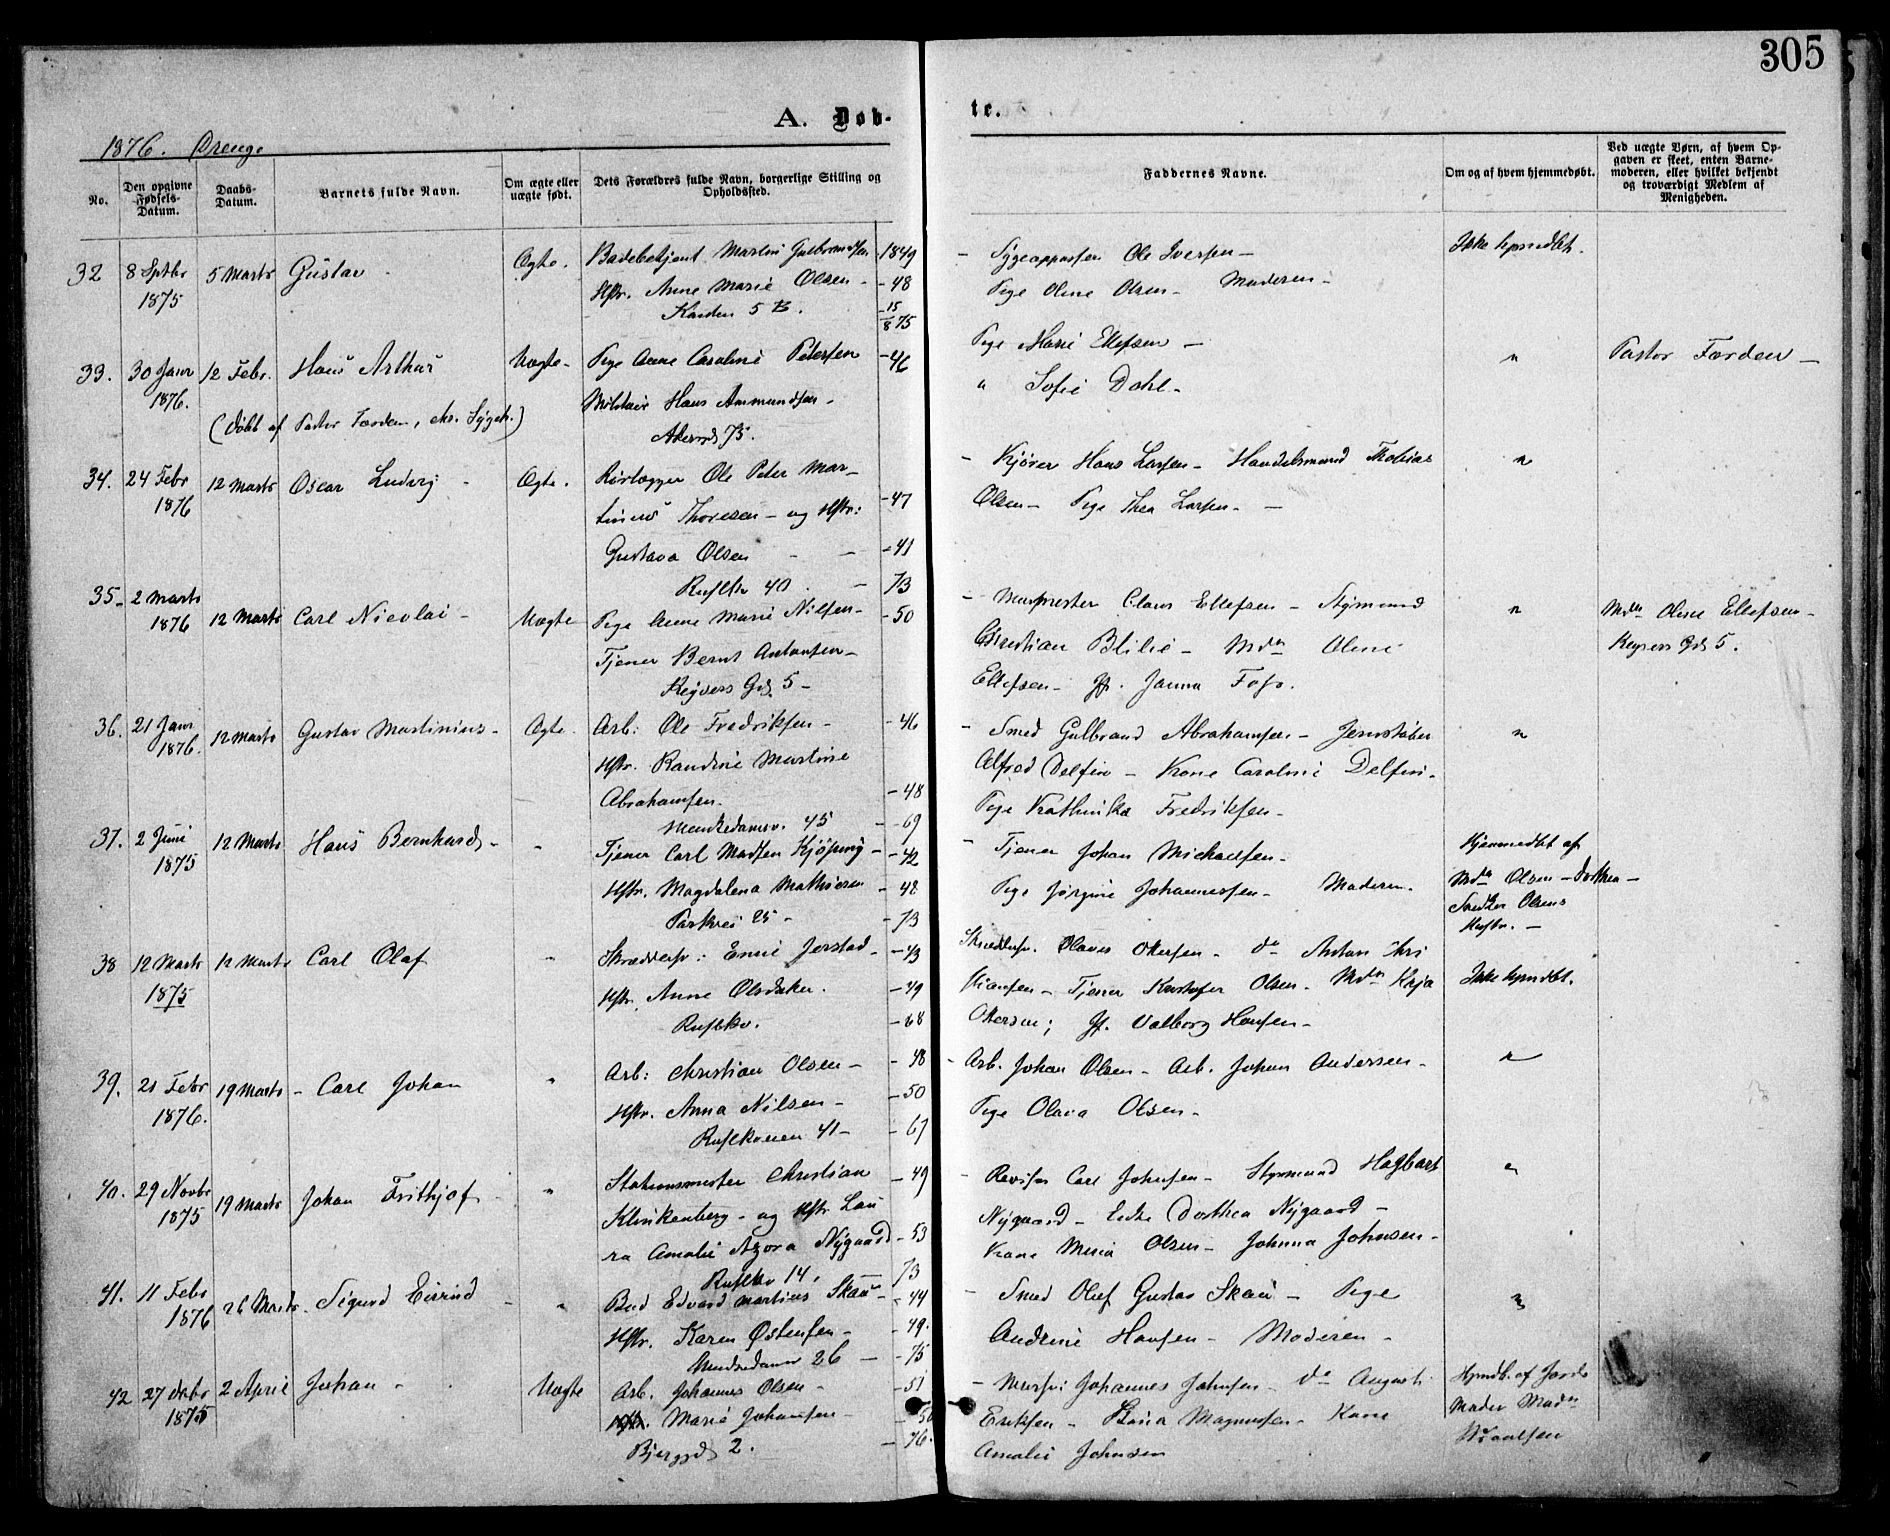 305
A. Døb- te.
1876. Drenge
No. Den opgivne Fødsels-Datum. Daabs-Datum. Barnets fulde Navn. Om ægte eller uægte født. Dets Forældres fulde Navn, borgerlige Stilling og Opholdssted. Faddernes Navne. Om og af hvem hjemmedøbt. Ved uægte Børn, af hvem Opgaven er skeet, enten Barnemoderen, eller hvilket bekjendt og troværdigt Medlem af Menigheden.
32 8 Septbr 5 Marts Gustav Ægte. Badebetjent Martin Gulbrandsen -1849 - Ole Iversen - Ikke hjmdbt.
1875 Hstr. Anne Marie Olsen - -48 Pige Oline Olsen - Moderen -
5 B. -15
875
33. 30 Janr 12 Febr. Hans Arthur Uægte - Pige Anne Caroline Petersen -46 Pige Marie Ellefsen - " Pastor Færden -
1876. " Sofie Dahl -
(døbt af Pastor Færden, Militair Hans Ammundsen -
Akersgd 75.
34. 24 Febr 12 Marts Oscar Ludvig - Ægte. Rørlægger Ole Peter Mar- - Kjører Hans Larsen - Handelsmand Tobias "
1876 tinius Thoresen - og Hstr: -47 Olsen - Pige Thea Larsen - -
Gustava Olsen - - -41
40 - 73
35 - 2 Marts 12 Marts Carl Nicolai - Uægte Pige Anne Marie Nilsen - -50 - Claus Ellefsen - Styrmand " Mdm Oline Ellefsen -
1876 Tjener Bernt Antonsen - Christian Blilie - Mdm Oline Keysers Gd. 5.
Keysers Gd. 5 - Ellefsen - Jfr. Janna
36. 21 Janr 12 Marts Gustav Martinius - Ægte. Arb: Ole Fredriksen - -46 - Smed Gulbrand Abrahamsen - Jernstøber "
1876. Hstr. Randine Martine Alfred Delfin - Kone Caroline Delfin -
Abrahamsen. -48 Pige Kathinka Fredriksen -
Munkedamsv. 45 - -69
37. 2 Juni 12 Marts Hans Bernhard - " Tjener Carl Madsen Kjøping - -42 - Tjener Johan Michaelsen - Hjemmedbt af
1875 Hstr. Magdalena Mathisen -48 Pige Jørgine Johannessen - Moderen. Mdm Olsen - Dorthea -
Parkvei 25 - -73 Snedker Olsens
Hustr. -
38 12 Marts 12 Marts Carl Olaf " Skrædersv: Jørstad - -43 Skrædersv. Olaves Ottersen - do Anton Chri
1875 Hstr. Anne -49 stiansen - Tjener Kristofer Olsen - Mdm Ikke hjmdbt.
-68 Ottersen; Jfr. Valborg Hansen -
39. 21 Febr 19 Marts - Carl Johan " Arb: Christian Olsen - -48 - Arb. Johan Olsen - Arb. Johan Andersen - "
1876. Hstr. Anna Nilsen - -50 Pige Olava Olsen -
41 - -67
40. 29 Novbr 19 Marts Johan Frithjof - " Stationsmester Christian -49 - Revisor Carl Johnsen - Styrmand Hagbart "
1875 Klinkenberg - og Hstr Lau Nygaard - Enke Dorthea Nygaard -
ra Amalie Nygaard -53 Kone Olsen - Johnsen -
14. -73
41. 11 Febr 26 Marts - Sigurd Eivind - " Bud Edvard Martinus Skau - -44 - Smed Oluf Gustav Skau - Pige "
1876 Hstr. Karen Østensen - -49. Andrine Hansen - Moderen -
Munkedamsv 26 - -75
42 27 Octbr 2 April Johan - Uægte Arb. Johannes Olsen - -51 - Johannes Johnsen - do August Hjmdb. af Jorde
1875 Marie Johansen - -50 Eriksen - Magnussen - Kone moder Madm
Bjerggd 2. -76. Amalie Johnsen